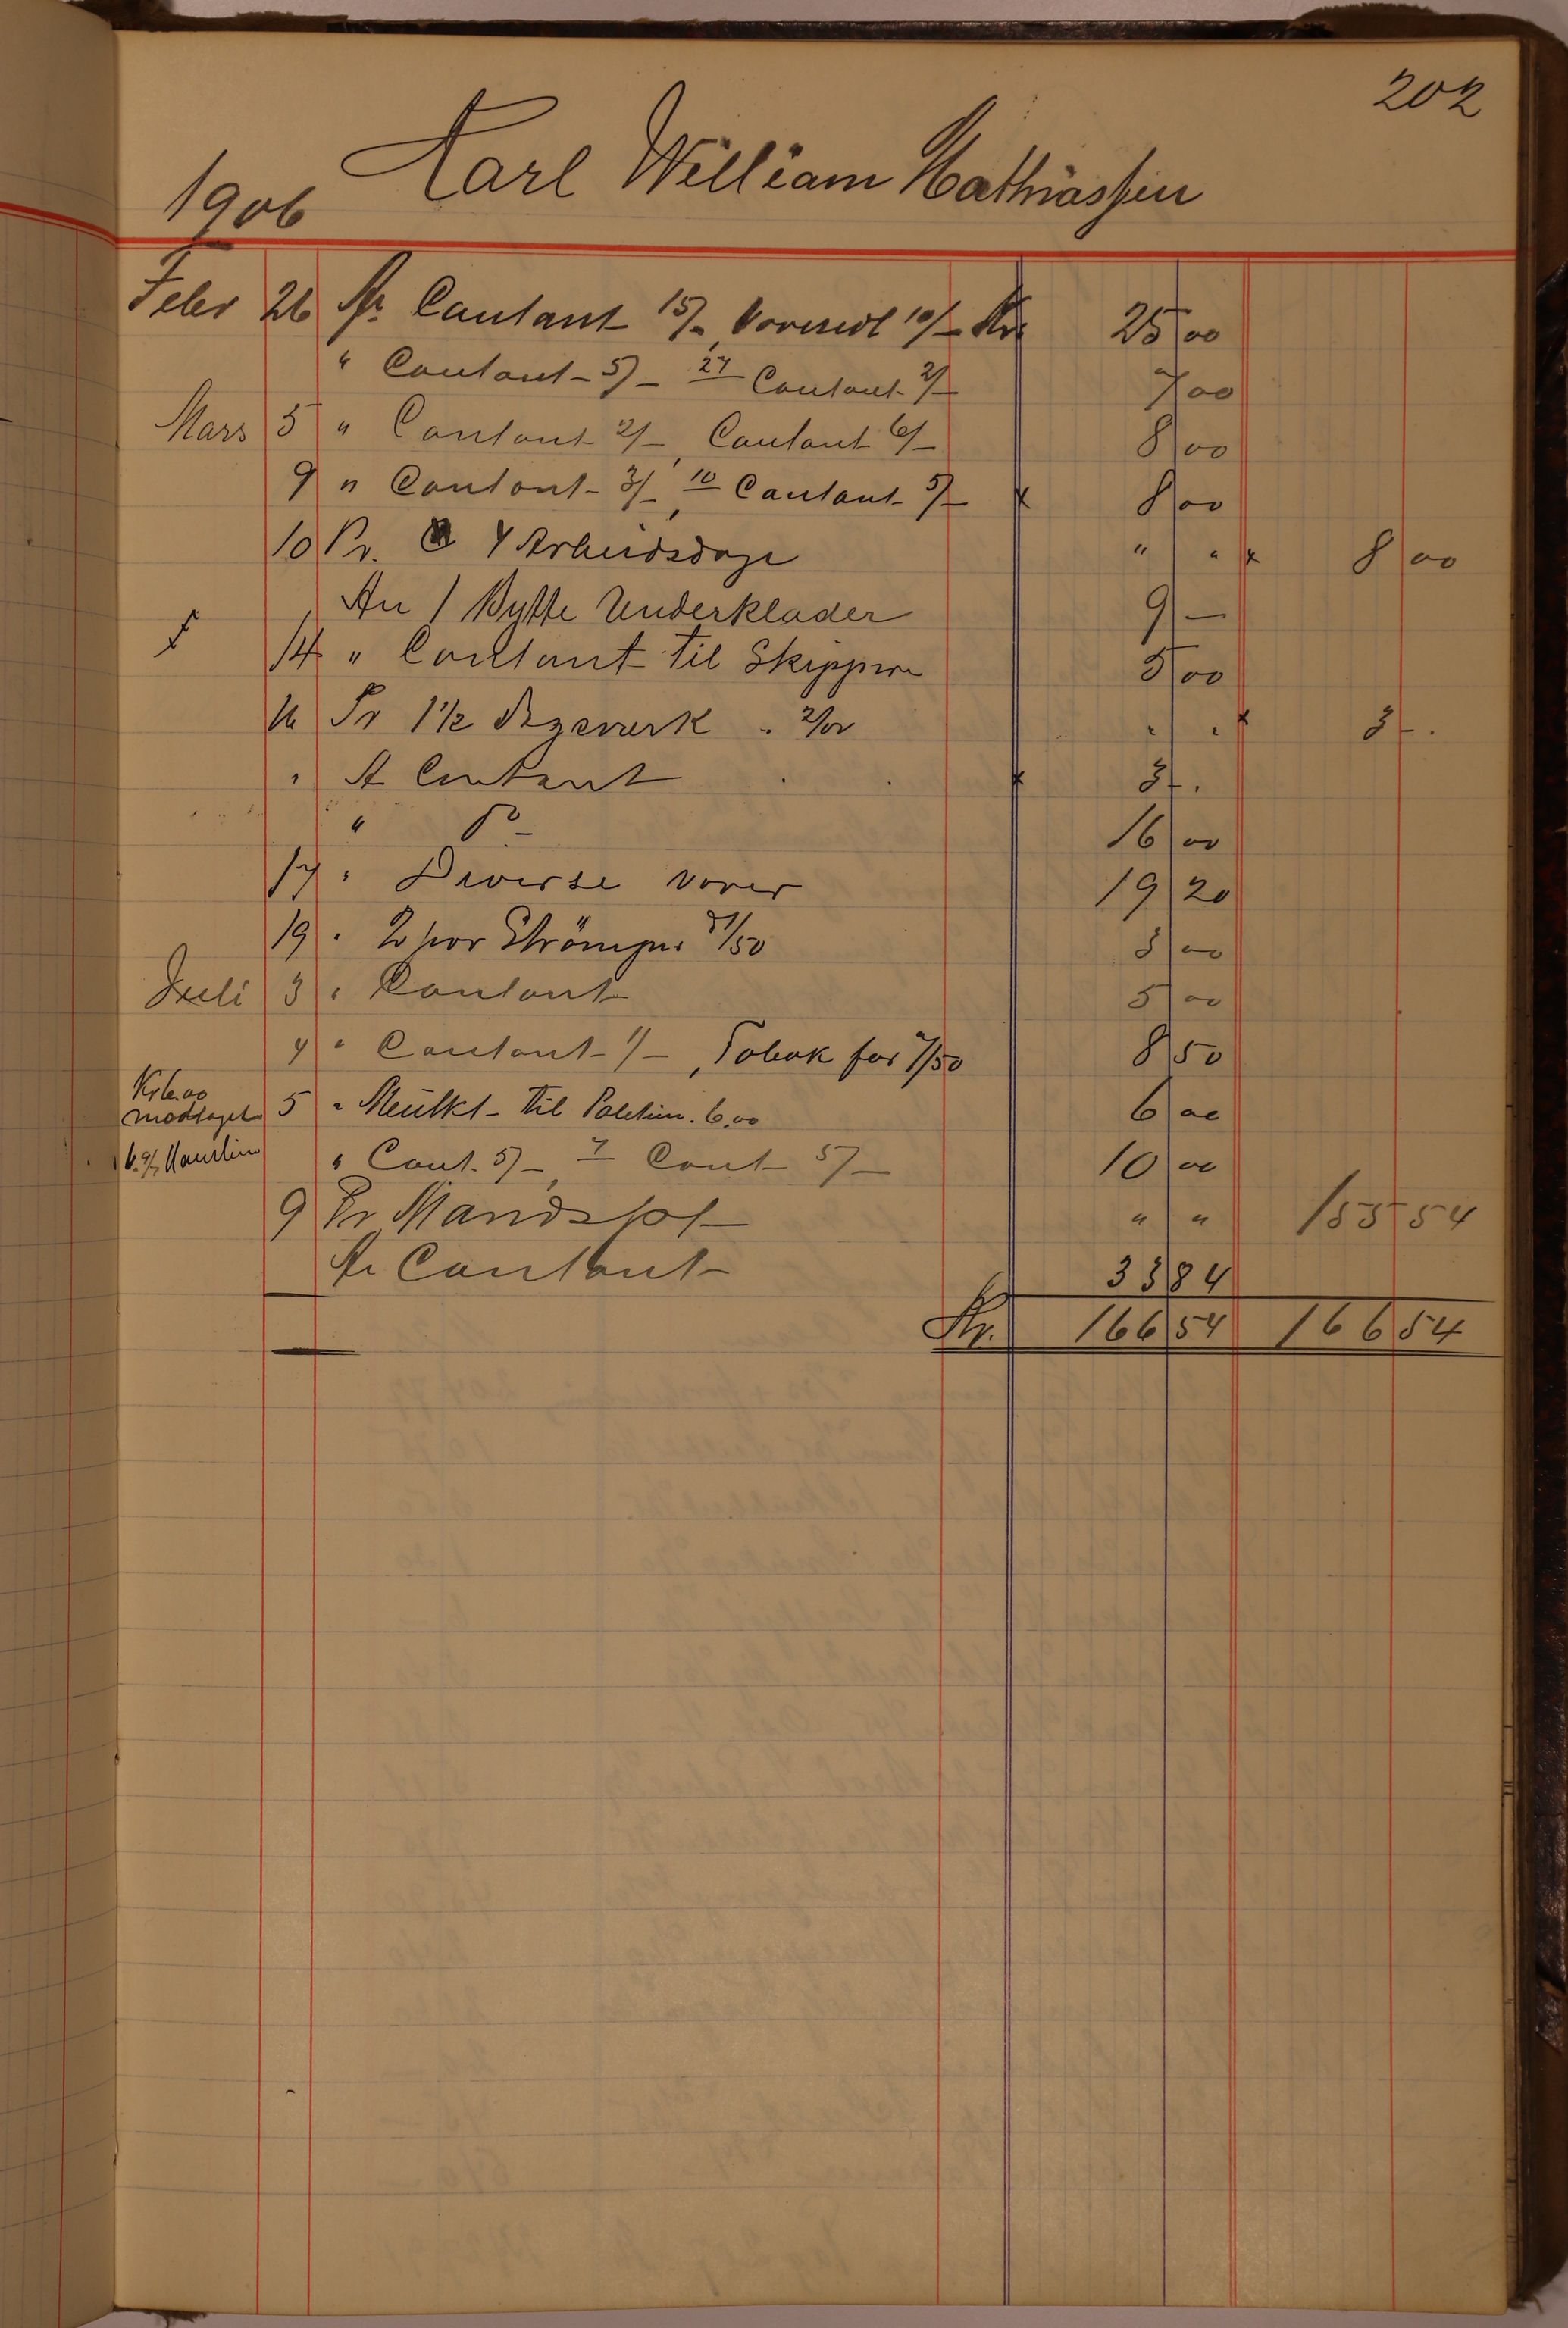 202
1906 Karl William Mathiassen
Febr 26 An Contant 15/-, Vareudt 10/- Kr. 25 00
" Contant 5/- 27 Contant 2/- 7 00
Mars 5 " Contant 2/-, Contant 6/- 8 00
9 " Contant 3/-, 10 Contant 5/- x 8 00
10 Pr. 4 Arbeidsdage " " x 8 00
An 1 Bytte Underklæder 9 -
14 " Contant til Skipperen 5 00
16 Pr 1 1/2 Dagsverk . 2/00 " " x 3 - .
" A Contant x 3 - .
" Do - 16 00
17 " Diverse varer 19 20
19 " 2 par Strömper 1/50 3 00
Juli 3 " Contant 5 00
4 " Contant 1/-, Tobak for 7/50 8 50
Kr 6.00
modtaget 5 " Mulkt til Politiet. 6.00 6 00
" Cont. 5/-, 7 Cont 5/- 10 00
9 Pr Mandslot " " 155 54
An Contant 33 84
Kr. 166 54 166 54